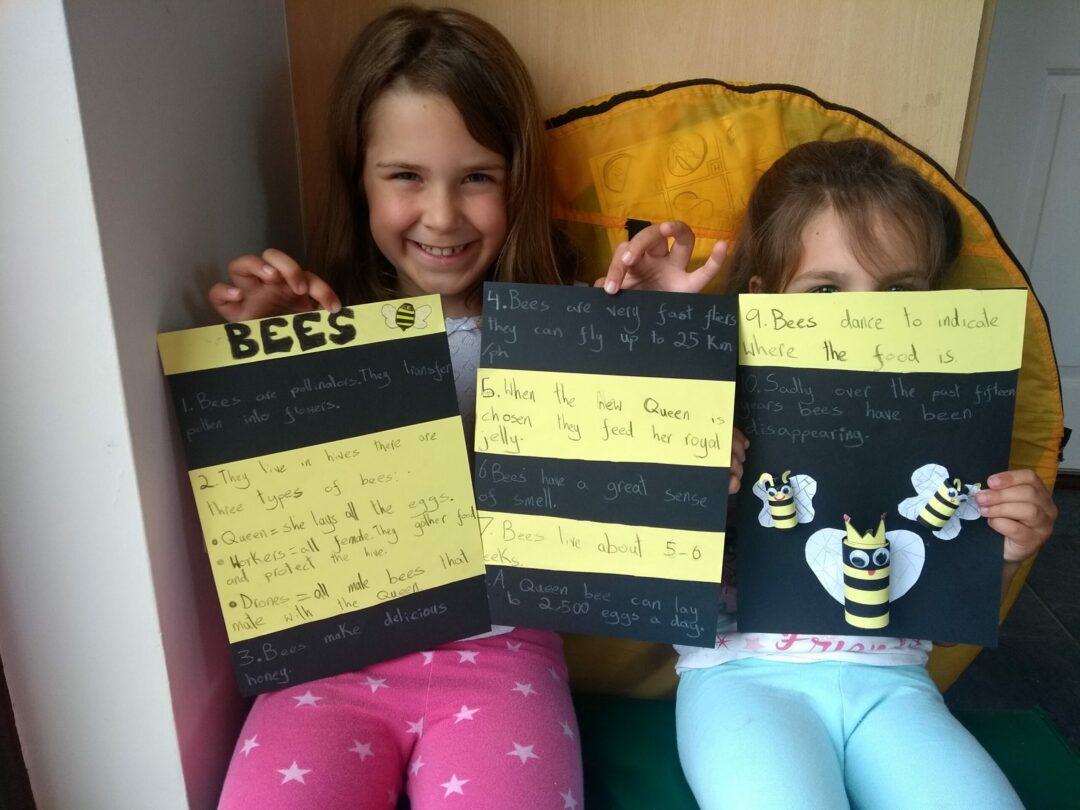 BEES
1. Bees are pollinators. They transfer
pollen into flowers.
2. They live in hives there are
three types of bees:
• Queen = she lays all the eggs.
• Workers = all female. They gather food
and protect the hive.
• Drones = all male bees that
mate with the Queen.
3. Bees make delicious
honey.
4. Bees are very fast fliers
they can fly up to 25 Km
/ph
5. When the New Queen is
chosen they feed her royal
jelly.
6 Bees have a great sense
of smell.
7. Bees live about 5-6
eeks.
. A Queen bee can lay
to 2,500 eggs a day.
9. Bees dance to indicate
where the food is.
10. Sadly over the past fifteen
years bees have been
disappearing.
Friends